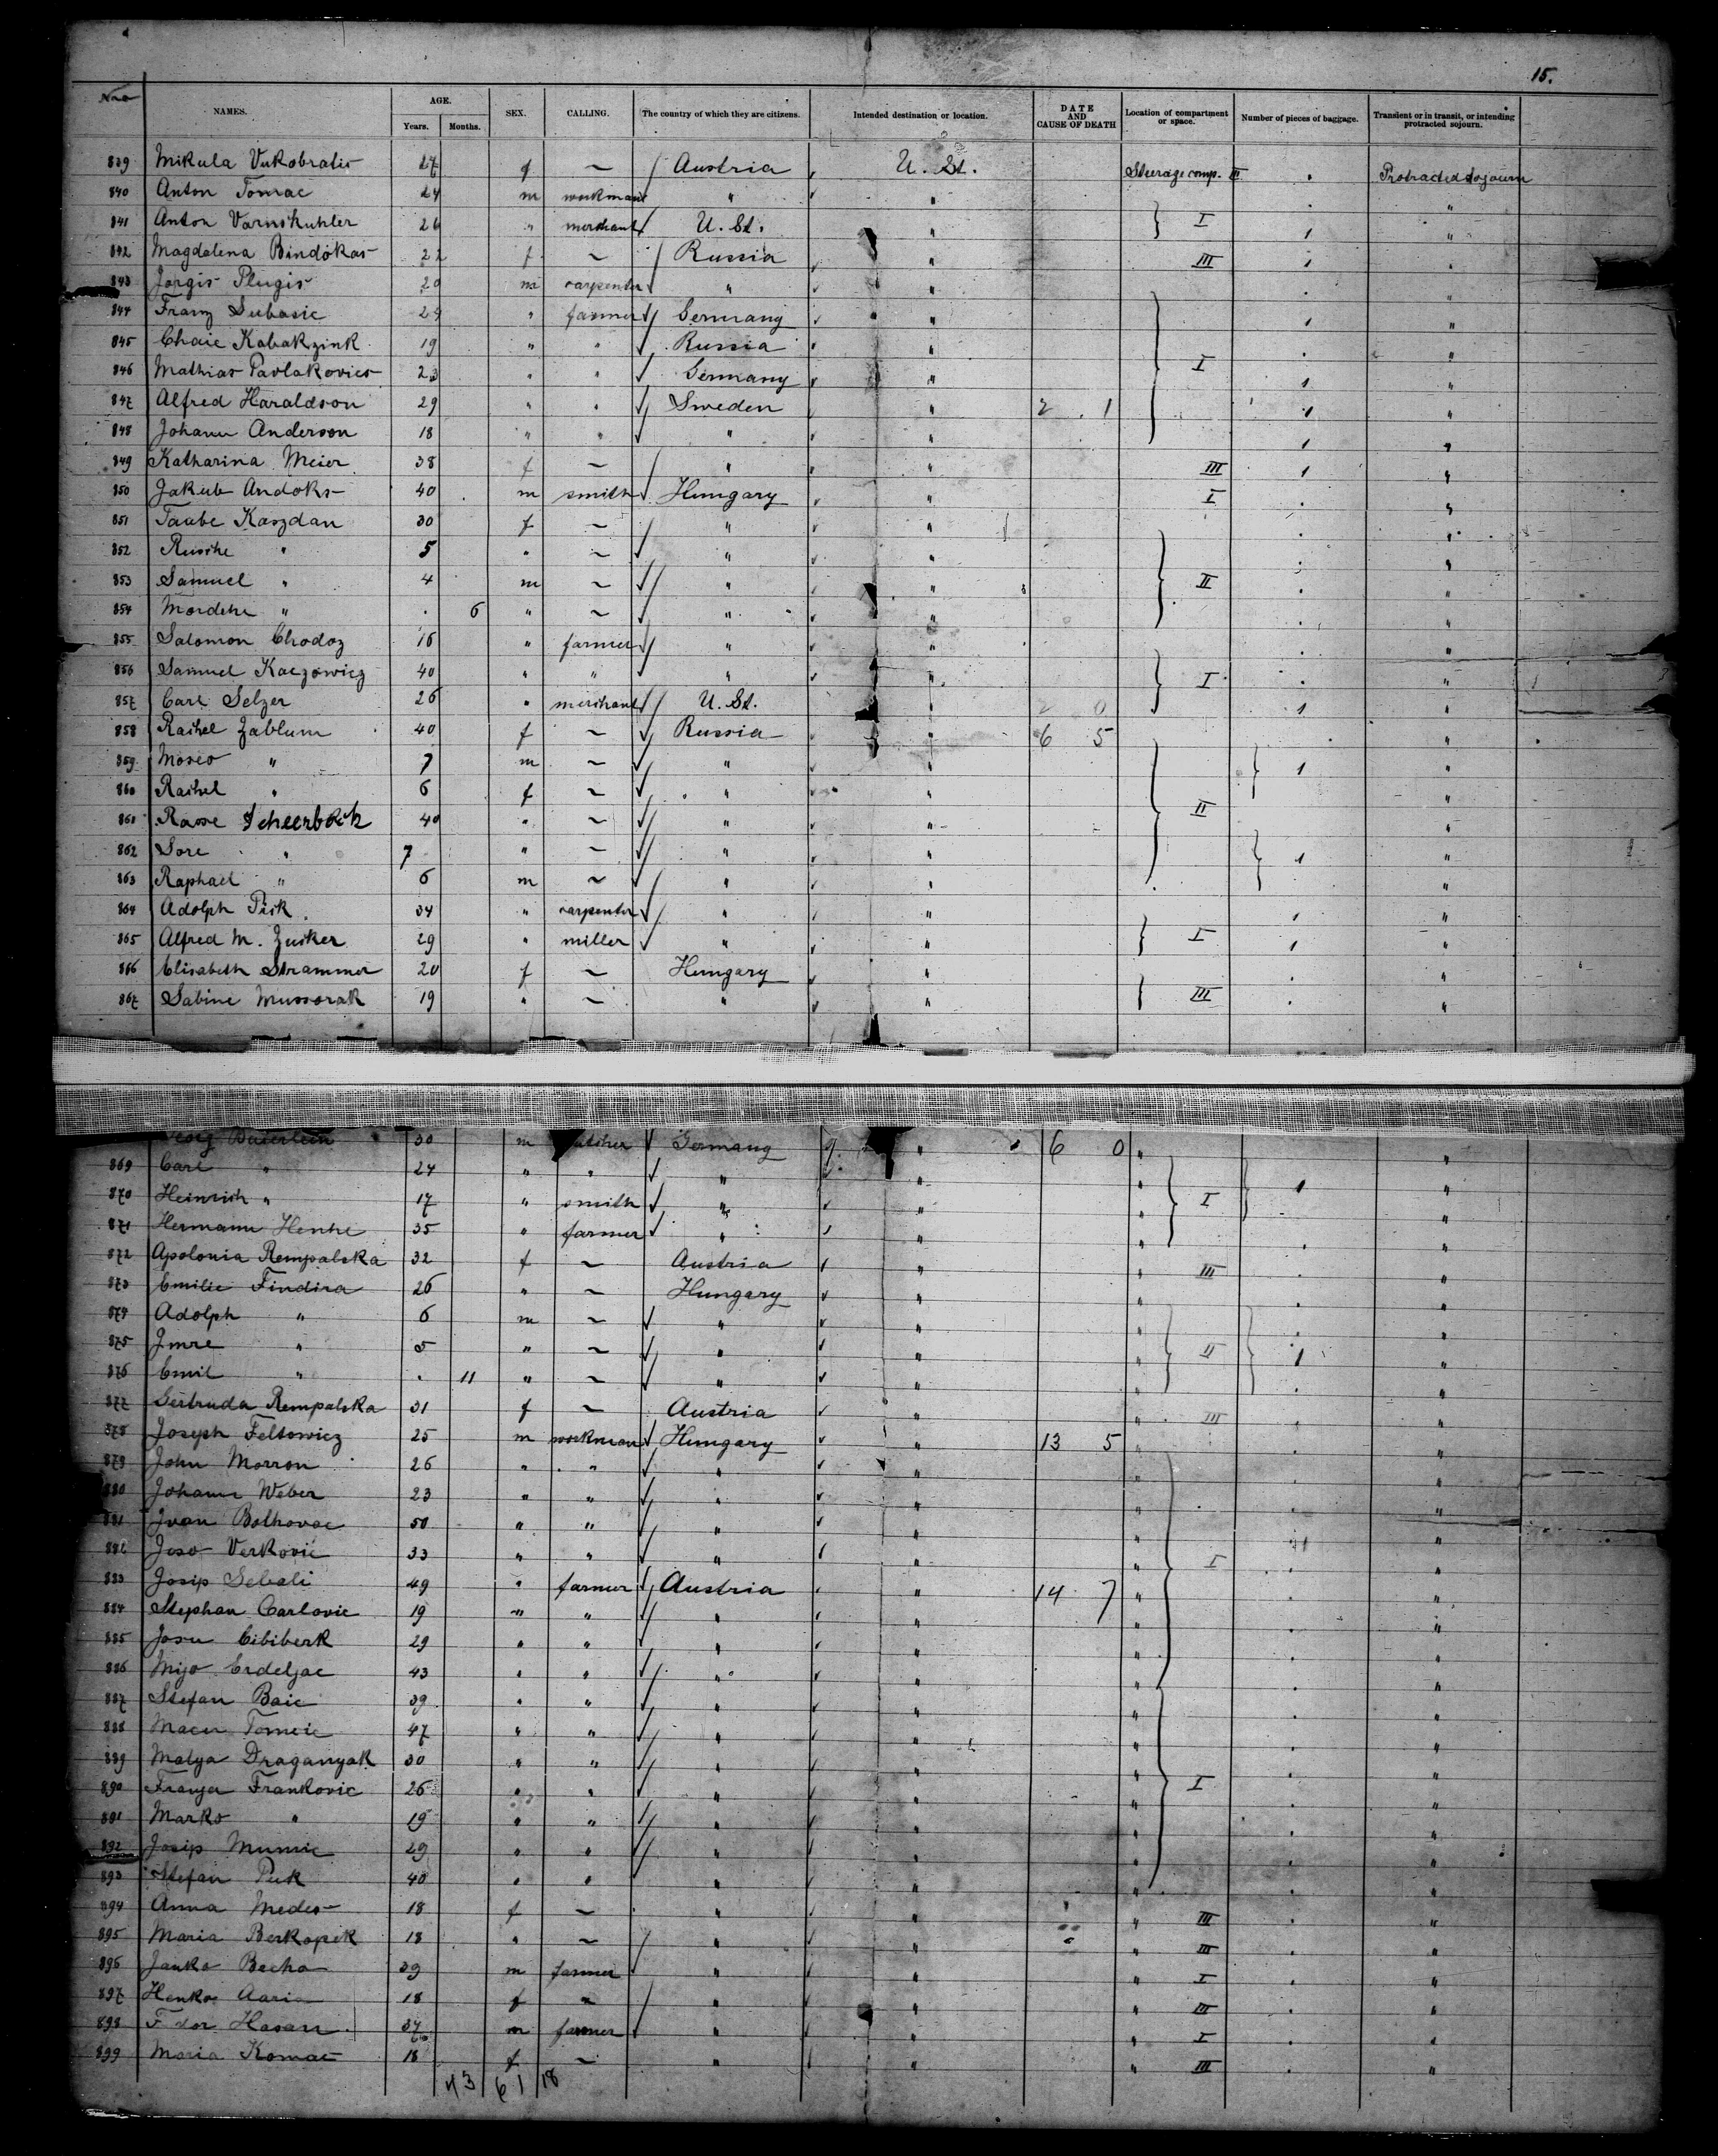 15.
No
NAMES. AGE. Years. Months. SEX. CALLING. The country of which they are citizens. Intended destination or location. DATE AND CAUSE OF DEATH Location of compartment or space. Number of pieces of baggage. Transient or in transit, or intending protracted sojourn.
839 Mikula Vukobratis 27 f ~ Austria U. St. Steerage comp. III Protracted sojourn
840 Anton Tomac 24 m workman " " "
841 Anton Varnskuhler 26 " merchant U. St. " I 1 "
842 Magdalena Bindokas 22 f ~ Russia " III 1 "
843 Jorgis Plugis 20 m carpenter " " "
844 Franz Subasic 29 " farmer Germany " 1 "
845 Chaie Kabakzink 19 " " Russia " "
846 Mathias Pavlakovics 23 " " Germany " I 1 "
847 Alfred Haraldson 29 " " Sweden " 2 1 1 "
848 Johann Anderson 18 " " " " 1 "
849 Katharina Meier 38 f ~ " " III 1 "
850 Jakub Andoks 40 m smith Hungary " I "
851 Taube Kaszdan 30 f ~ " " "
852 Rusche " 5 " ~ " " "
853 Samuel " 4 m ~ " " II "
854 Mordche " . 6 " ~ " " "
855 Salomon Chodoz 16 " farmer " " "
856 Samuel Kaczowicz 40 " " " " I "
857 Carl Selzer 26 " merchant U. St. " 2 0 1 "
858 Rachel Zablum 40 f ~ Russia " 6 5 "
859 Moses " 7 m ~ " " 1 "
860 Rachel " 6 f ~ " " "
861 Rasse Scheerbock 40 " ~ " " II "
862 Sore " 7 " ~ " " 1 "
863 Raphael " 6 m ~ " " "
864 Adolph Pick 34 " carpenter " " 1 "
865 Alfred M. Zucker 29 " miller " " I 1 "
866 Elisabeth Strammer 20 f ~ Hungary " "
867 Sabine Mussorak 19 " ~ " " III "
Georg Baierlein 30 m Germany " 6 0 " "
869 Carl " 24 " " " " " 1 "
870 Heinrich " 17 " smith " " " I "
871 Hermann Henke 35 " farmer " " " "
872 Apolonia Rempalska 32 f ~ Austria " " III "
873 Emilie Findira 26 " ~ Hungary " " "
874 Adolph " 6 m ~ " " " "
875 Imre " 5 " ~ " " " II 1 "
876 Emil " . 11 " ~ " " " "
877 Gertruda Rempalska 31 f ~ Austria " " III "
878 Joseph Feltowicz 25 m workman Hungary " 13 5 " "
879 John Morron 26 " " " " " "
880 Johann Weber 23 " " " " " "
881 Ivan Bolhovac 50 " " " " " "
882 Joso Verkovic 33 " " " " " I "
883 Josip Sebali 49 " farmer Austria " 14 7 " "
884 Stephan Carlovic 19 " " " " " "
885 Josu Cibiberk 29 " " " " " "
886 Mijo Erdeljac 43 " " " " " "
887 Stefan Baic 39 " " " " " "
888 Macu Tomcic 47 " " " " " "
889 Malya Draganyak 30 " " " " " "
890 Franya Frankovic 26 " " " " " I "
891 Marko " 19 " " " " " "
892 Josip Mumic 29 " " " " " "
893 Stefan Puk 40 " " " " " "
894 Anna Medes 18 f ~ " " " III "
895 Maria Berkopek 18 " ~ " " " III "
896 Janko Becha 39 m farmer " " " I "
897 Henko Aaria 18 f ~ " " " III "
898 Hasan 37 m farmer " " " I "
899 Maria Komac 18 f ~ " " " III "
43 61 18